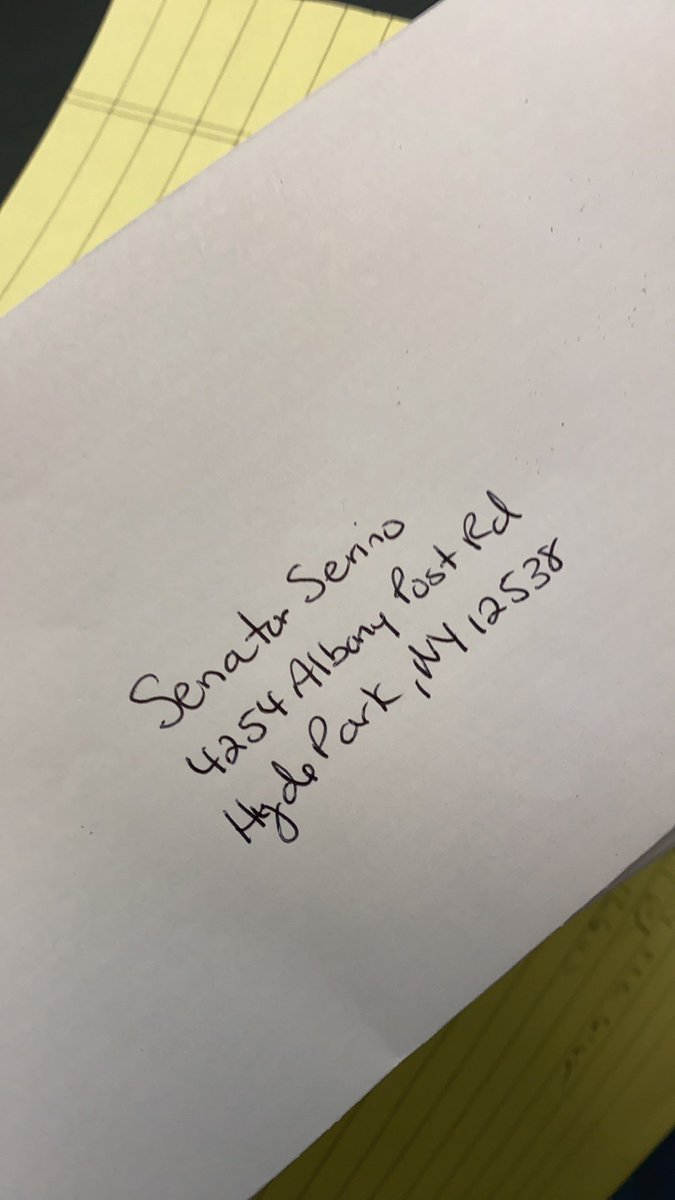 Senator Serino
4254 Albany Post Rd
Hyde Park, NY 12538